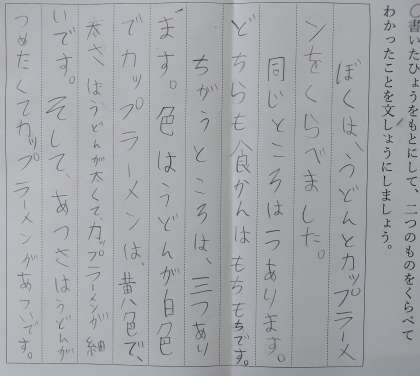 ○書いたひょうをもとにして、二つのものをくらべて
わかったことを文しょうにしましょう。
ぼくは、うどんとカップラーメ
ンをくらべました。
同じところは一つあります。
どちらも食かんはもちもちです。
ちがうところは、三つあり
ます。色はうどんが白色
でカップラーメンは、黄色で、
太さはうどんが太くて、カップラーメンが細
いです。そして、あつさはうどんが
つめたくてカップラーメンがあついです。